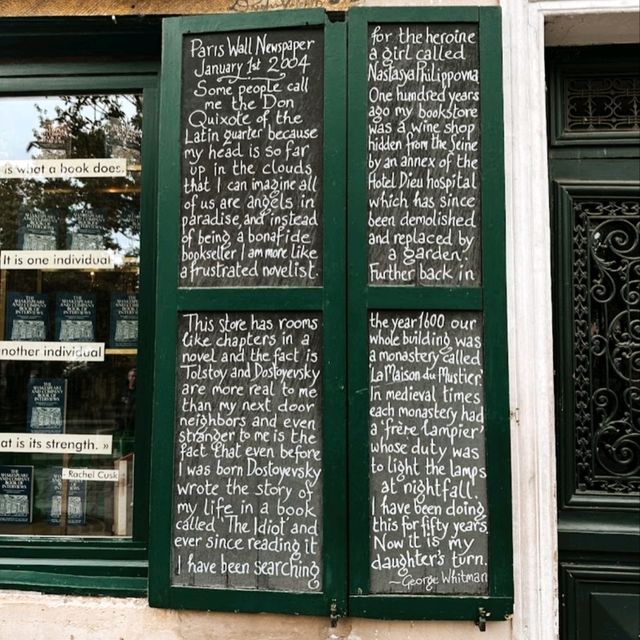 is what a book does.
It is one individual
nother individual
at is its strength. »
- Rachel Cusk
THE
SHAKESPEARE
AND COMPANY
BOOK OF
INTERVIEWS
Paris Wall Newspaper
January 1st 2004
Some people call
me the Don
Quixote of the
Latin quarter because
my head is so far
up in the clouds
that I can imagine all
of us are angels in
paradise, and instead
of being a bonafide
bookseller I am more like
a frustrated novelist.
This store has rooms
like chapters in a
novel and the fact is
Tolstoy and Dostoyevsky
are more real to me
than my next door
neighbors and even
stranger to me is the
fact that even before
I was born Dostoyevsky
wrote the story of
my life in a book
called 'The Idiot' and
ever since reading it
I have been searching
for the heroine
a girl called
Nastasya Philippovna.
One hundred years
ago my bookstore
was a wine shop
hidden from the Seine
by an annex of the
Hotel Dieu hospital
which has since
been demolished
and replaced by
a garden.
Further back in
the year 1600 our
whole building was
a monastery called
'La Maison du Mustier'
In medieval times
each monastery had
a 'frère lampier'
whose duty was
to light the lamps
at nightfall.
I have been doing
this for fifty years,
Now it is my
daughter's turn.
-George Whitman